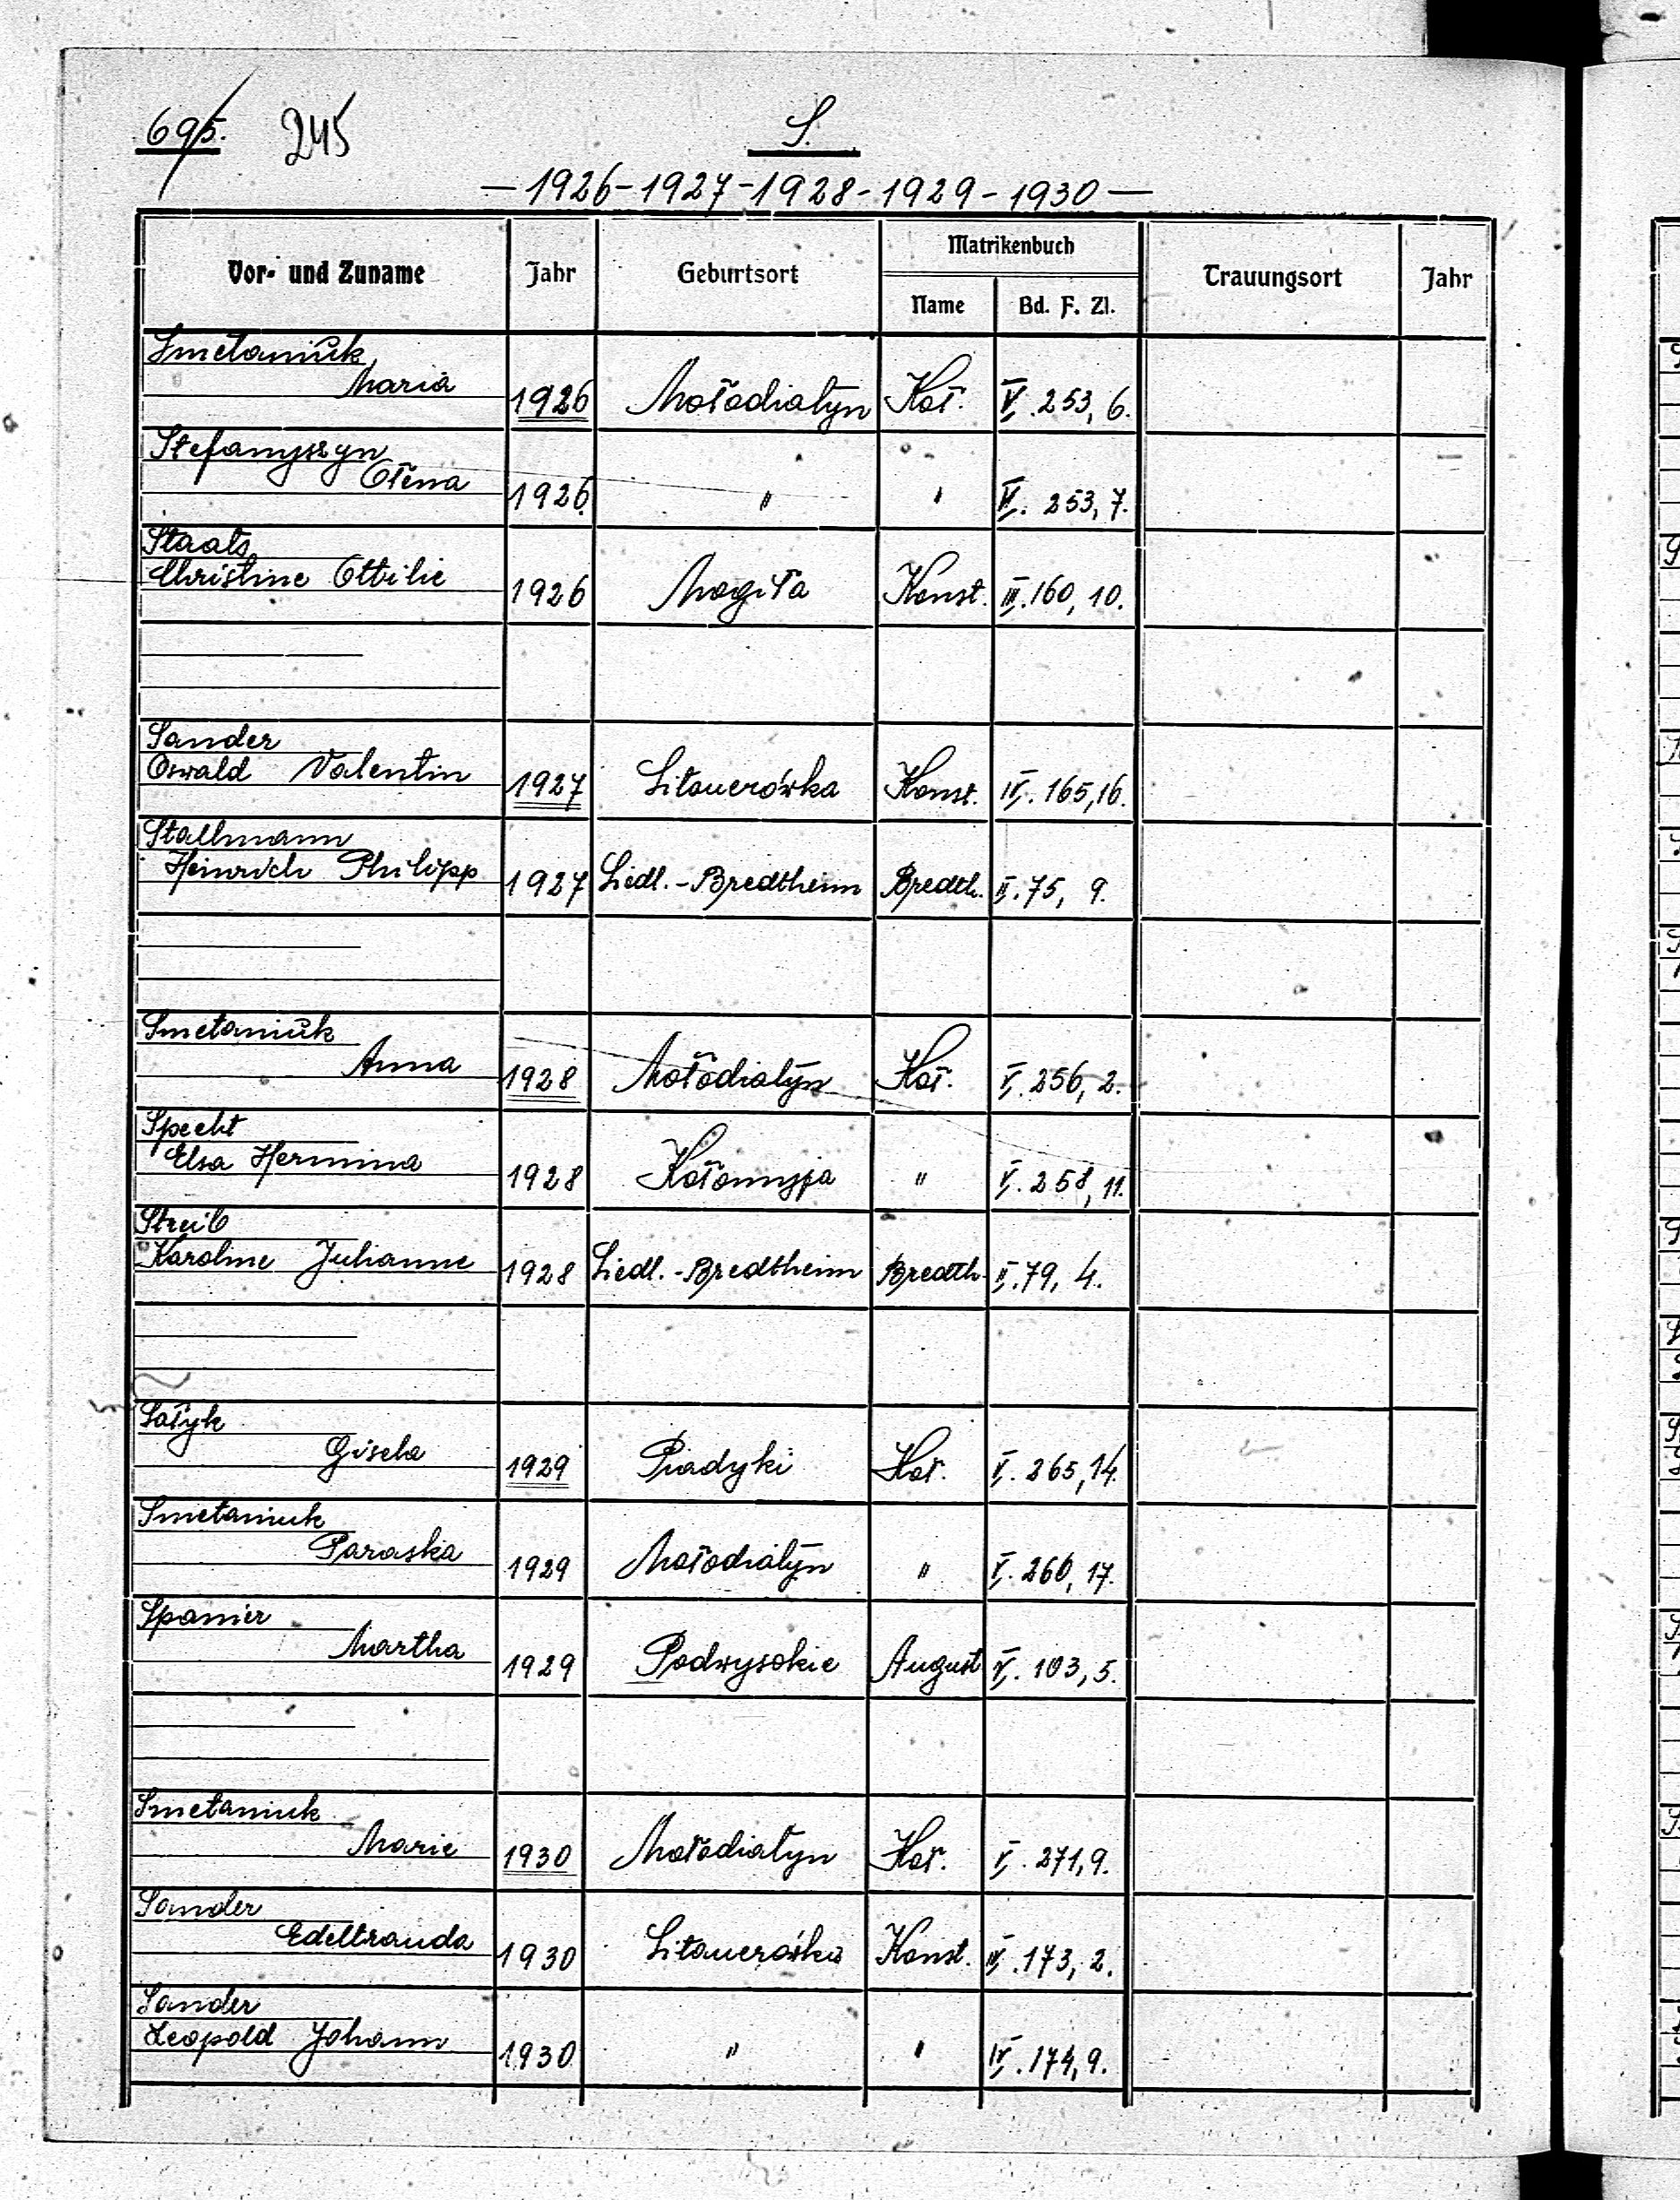 695. 245 S.
— 1926 - 1927 - 1928 - 1929 - 1930 —
Vor- und Zuname Jahr Geburtsort Matrikenbuch Trauungsort Jahr
Name Bd. F. Zl.
Smetaniuk
Maria 1926 Mołodiatyn Koł. V. 253, 6.
Stefanyszyn
Ołena 1926 " " V. 253, 7.
Staats
Christine Ottilie 1926 Mogiła Konst. III. 160, 10.
Sander
Oswald Valentin 1927 Sitauerówka Konst. IV. 165, 16.
Stallmann
Heinrich Philipp 1927 Siedl.-Bredtheim Bredth. II. 75, 9.
Smetaniuk
Anna 1928 Mołodiatyn Koł. V. 256, 2.
Specht
Elsa Hermina 1928 Kołomyja " V. 258, 11.
Streib
Karoline Julianne 1928 Siedl.-Bredtheim Bredth. II. 79, 4.
Sałyk
Gisela 1929 Piadyki Koł. V. 265, 14.
Smetaniuk
Paraska 1929 Mołodiatyn " V. 260, 17.
Spanier
Martha 1929 Podwysokie August V. 103, 5.
Smetaniuk
Marie 1930 Mołodiatyn Koł. V. 271, 9.
Sander
Edeltrauda 1930 Sitauerówka Konst. IV. 173, 2.
Sander
Leopold Johann 1930 " " IV. 174, 9.